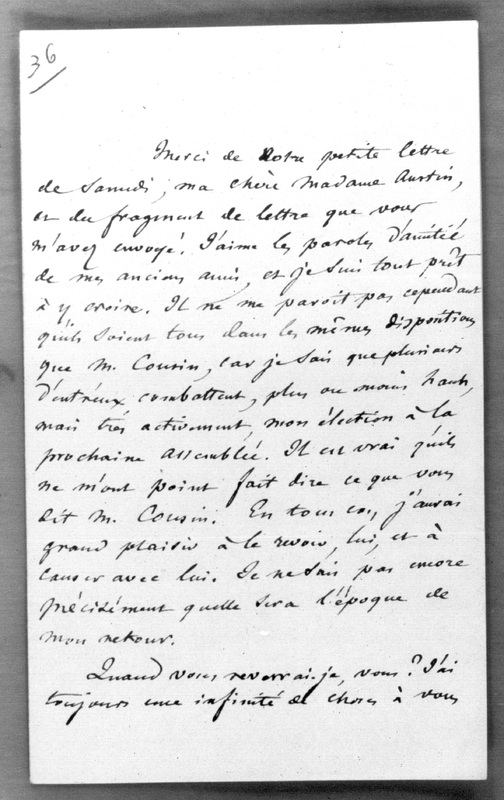 36
Merci de votre petite lettre
de Samedi, ma chère Madame Austin,
et du fragment de lettre que vous
m'avez envoyé. J'aime les paroles d'amitié
de mes anciens amis, et je suis tout prêt
à y croire. Il ne me paroit pas cependant
qu'ils soient tous dans les mêmes dispositions
que M. Cousin, car je sais que plusieurs
d'entr'eux combattent, plus ou moins haut,
mais très activement, mon élection à la
prochaine assemblée. Il est vrai qu'ils
ne m'ont point fait dire ce que vous
dit M. Cousin. En tous cas, j'aurai
grand plaisir à le revoir, lui, et à
causer avec lui. Je ne sais pas encore
précisément quelle sera l'époque de
mon retour.
Quand vous reverrai-je, vous? J'ai
toujours une infinité de choses à vous